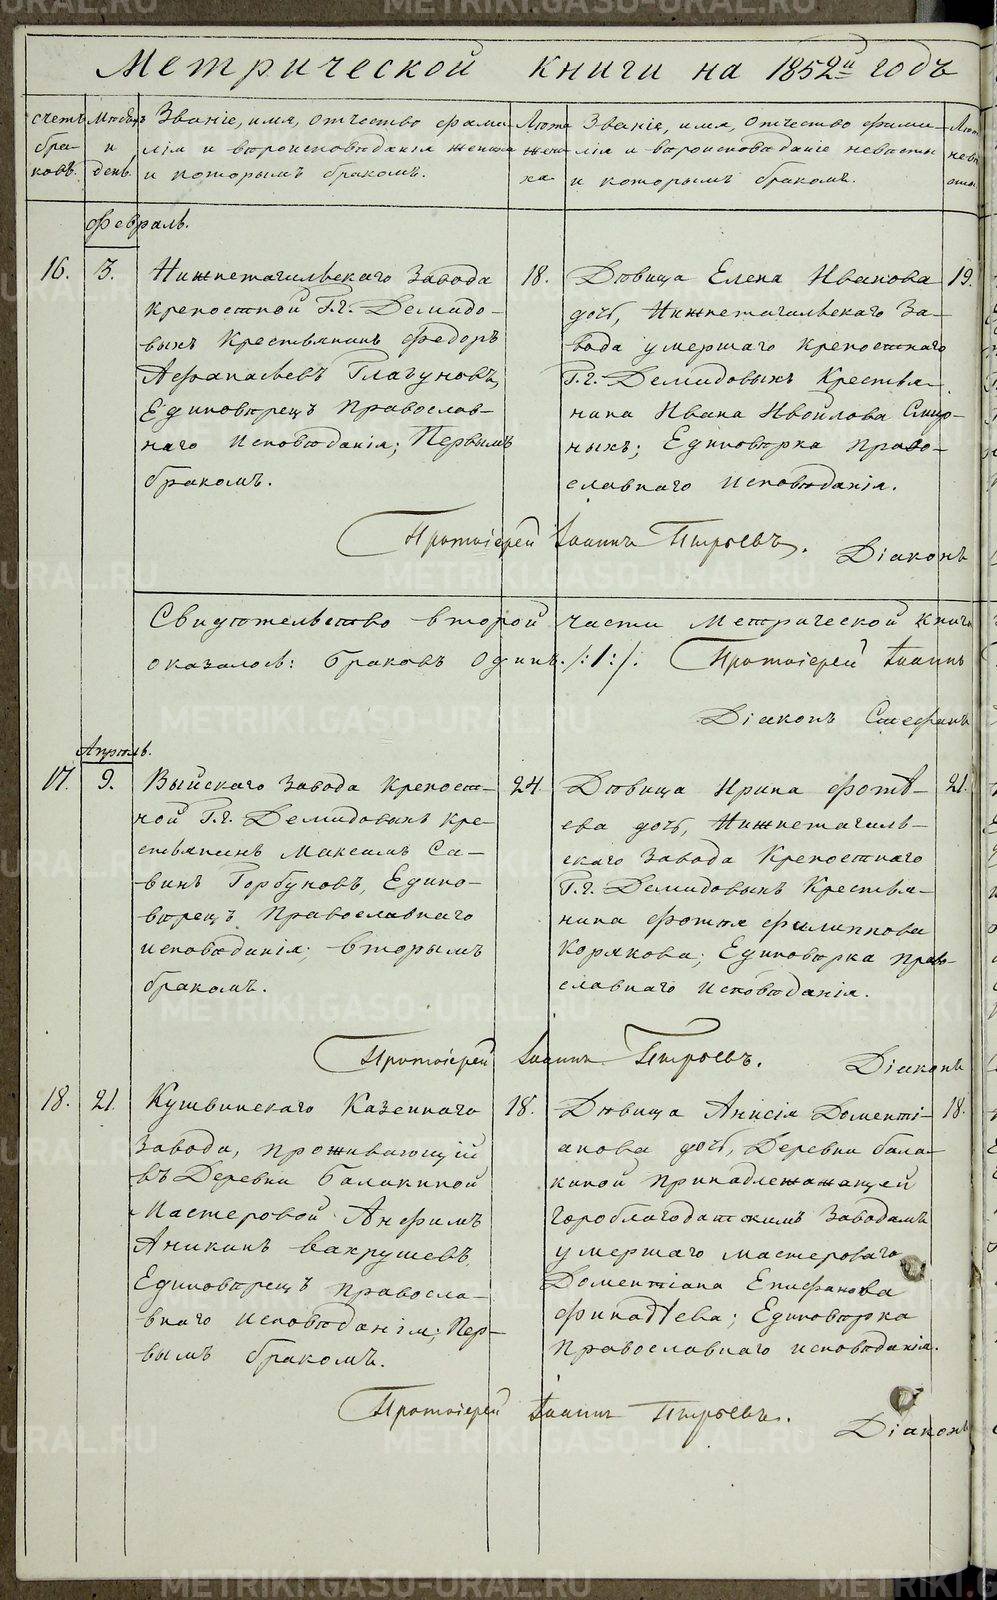 Метрической книги на 1852й годъ
счетъ браковъ.
Мѣсяцъ и день.
Званіе, имя, отчество фами-
лія и вѣроисповѣданія жениха
и которымъ бракомъ.
Лѣта жениха
Званіе, имя, отчество фами-
лія и вѣроисповѣданіе невѣсты
и которымъ бракомъ.
Февраль.
16.
3.
Нижнетагильскаго Завода
крепостной Г.г. Демидо-
выхъ Крестьянинъ Федоръ
Афанасьевъ Глагуновъ,
Единовѣрецъ Православ-
наго Исповѣданія; Первымъ
бракомъ.
18.
Дѣвица Елена Иванова
дочь, Нижнетагильскаго За-
вода умершаго крепостнаго
Г.г. Демидовыхъ Крестья-
нина Ивана Ивойлова Смир-
ныхъ; Единовѣрка Право-
славнаго Исповѣданія.
19.
Протоіерей Іоаннъ Пырьевъ.
Діаконъ
Свидѣтельство второй части Метрической Книги
оказалось: браковъ Одинъ. /:1:/. Протоіерей Іоаннъ
Діаконъ Стефанъ
Апрѣль.
17.
9.
Выйскаго Завода Крепост-
ной Г.г. Демидовыхъ Кре-
стьянинъ Максимъ Са-
винъ Горбуновъ, Едино-
вѣрецъ Православнаго
исповѣданія; вторымъ
бракомъ.
24.
Дѣвица Ирина Фотѣ-
ева дочь, Нижнетагиль-
скаго Завода Крепостнаго
Г.г. Демидовыхъ Крестья-
нина Фотѣя Филиппова
Корякова; Единовѣрка Право-
славнаго Исповѣданія.
21.
Протоіерей Іоаннъ Пырьевъ.
Діаконъ
18.
21.
Кушвинскаго Казеннаго
Завода, проживающій
въ Деревни Балакиной
Мастеровой Анфимъ
Аникинъ Вахрушевъ,
Единовѣрецъ Правосла-
внаго Исповѣданія; Пер-
вымъ бракомъ.
18.
Дѣвица Анисія Доменті-
анова дочь, Деревни Бала-
киной Принадлежажащей
Гороблагодатскимъ Заводамъ
умершаго мастероваго
Доментіана Епифанова
Финадѣева; Единовѣрка
Православнаго исповѣданія.
18.
Протоіерей Іоаннъ Пырьевъ.
Діаконъ
METRIKI.GASO-URAL.RU